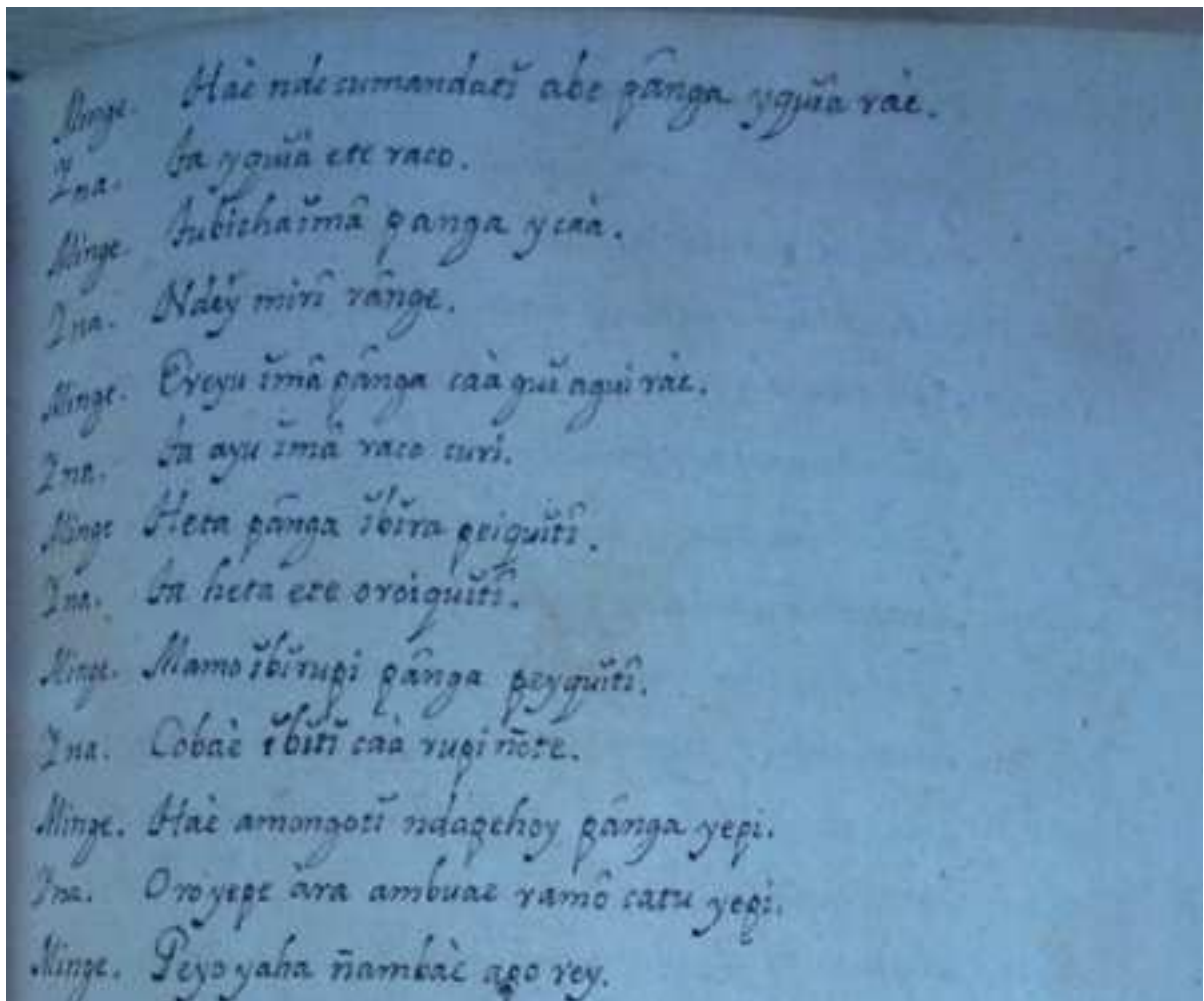 Minge. Haè nde cumandatĭ abe pânga yquĭa ràe.
Ina. Ta yquĭà ete raco.
Minge. Tubichaĭmâ panga y caà.
Ina. Ndeÿ mirî rânge.
Minge. Ereyu ĭmâ pânga caà guĭ agui ràe.
Ina. Ta ayu ĭmâ raco curì.
Minge Heta pânga ĭbĭra peiquĭtî.
Ina. Ta heta ete oroiquĭtî.
Minge. Mamo ĭbĭrupi pânga peyquĭtî.
Ina. Cobaè ĭbĭtĭ caà rupi ñote.
Minge. Haè amongotĭ ndapehoy pânga yepi.
Ina. Oroyepe àra ambuae ramô catu yepì.
Minge. Peyo yaha ñambaè apo rey.